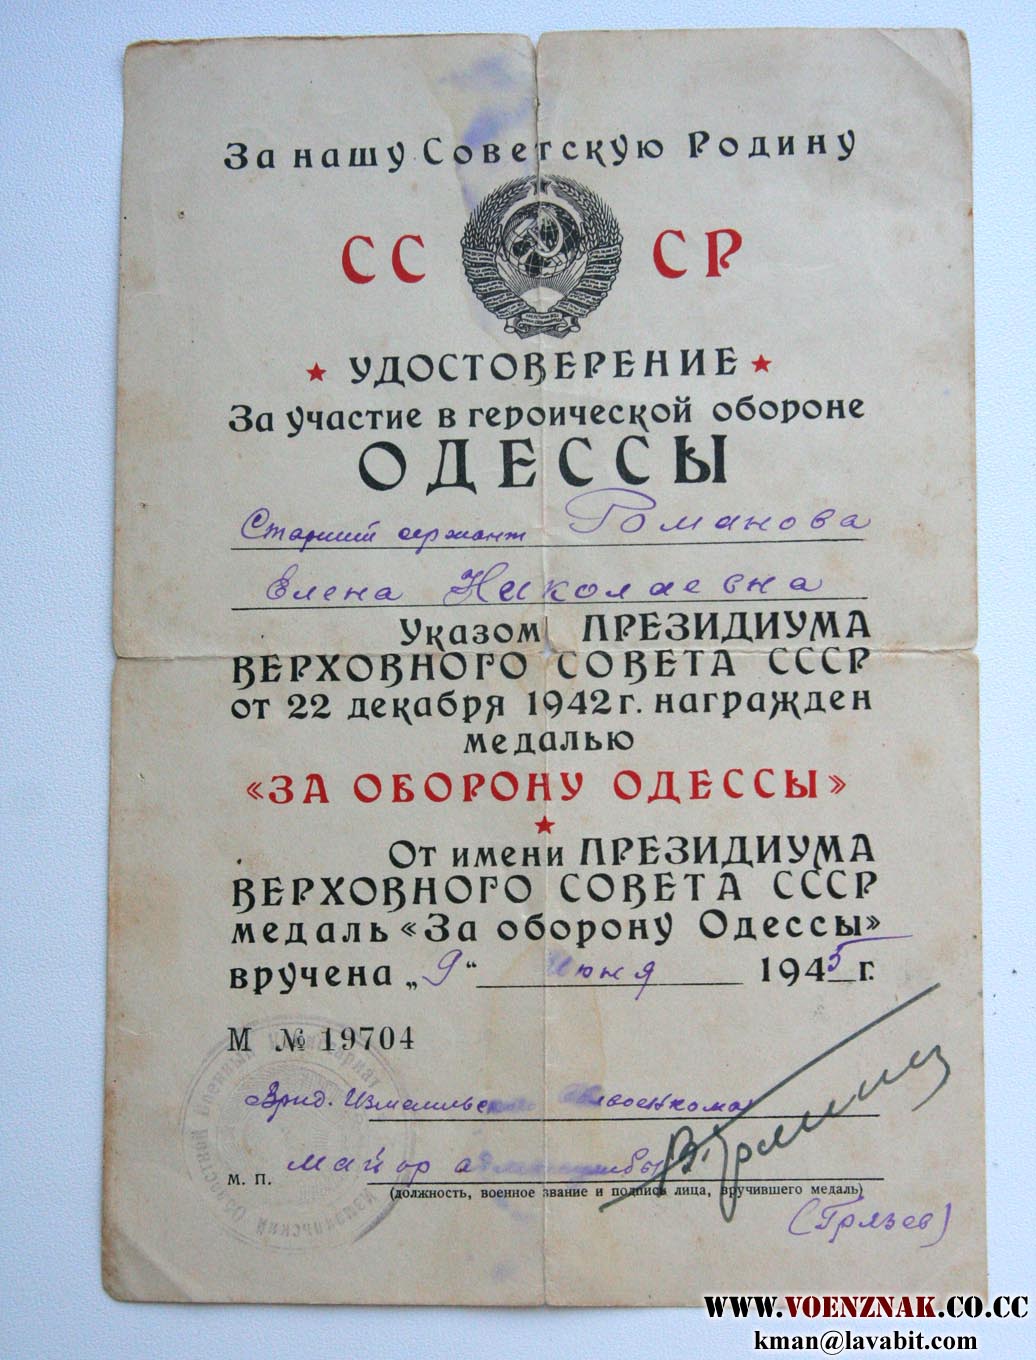 За нашу Советскую Родину
СС СР
УДОСТОВЕРЕНИЕ
За участие в героической обороне
ОДЕССЫ
Старший сержант Романова
Елена Николаевна
Указом ПРЕЗИДИУМА
ВЕРХОВНОГО СОВЕТА СССР
от 22 декабря 1942 г. награжден
медалью
«ЗА ОБОРОНУ ОДЕССЫ»
От имени ПРЕЗИДИУМА
ВЕРХОВНОГО СОВЕТА СССР
медаль «За оборону Одессы»
вручена „9“ июня 1945 г.
М № 19704
Врид. Измаильского Облвоенкома
М. П. майор адм. службы
(должность, военное звание и подпись лица, вручившего медаль)
(Грязев)
Измаильский Областной Военный Комиссариат
WWW.VOENZNAK.CO.CC
kman@lavabit.com